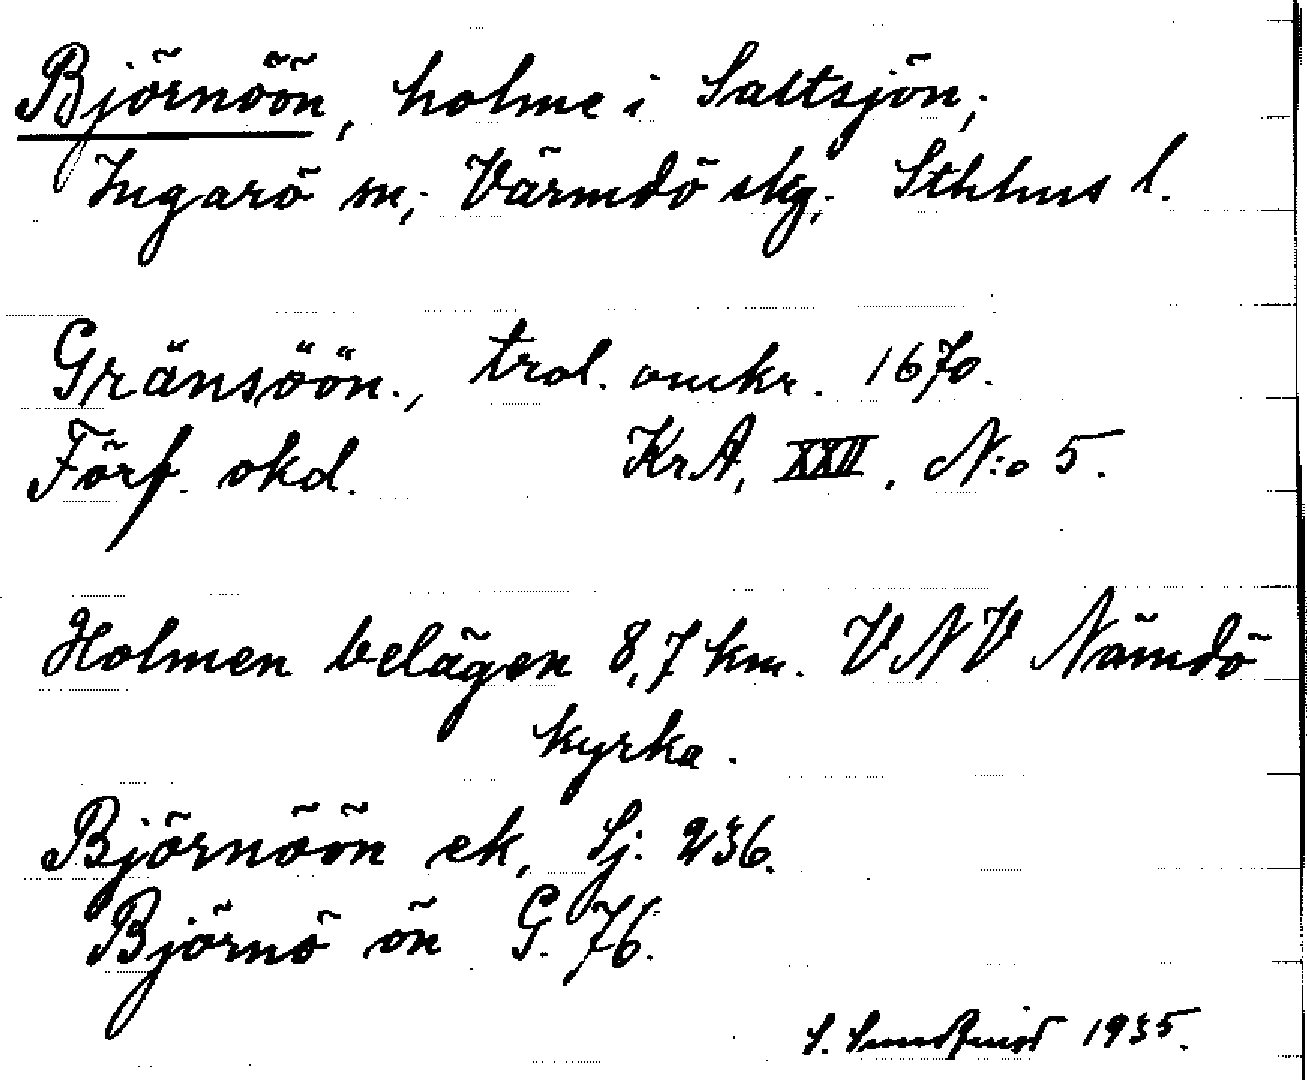 Björnöön, holme i Saltsjön;
Ingarö sn; Värmdö skg; Sthlms l.
Gränsöön., trol. omkr. 1670.
Förf. okd. KrA, XXII, N:o 5.
Holmen belägen 8,7 km. VNV Nämdö
kyrka.
Björnöön ek, Sj. 236.
Björnö ön G. 76.
S. Sundquist 1935.